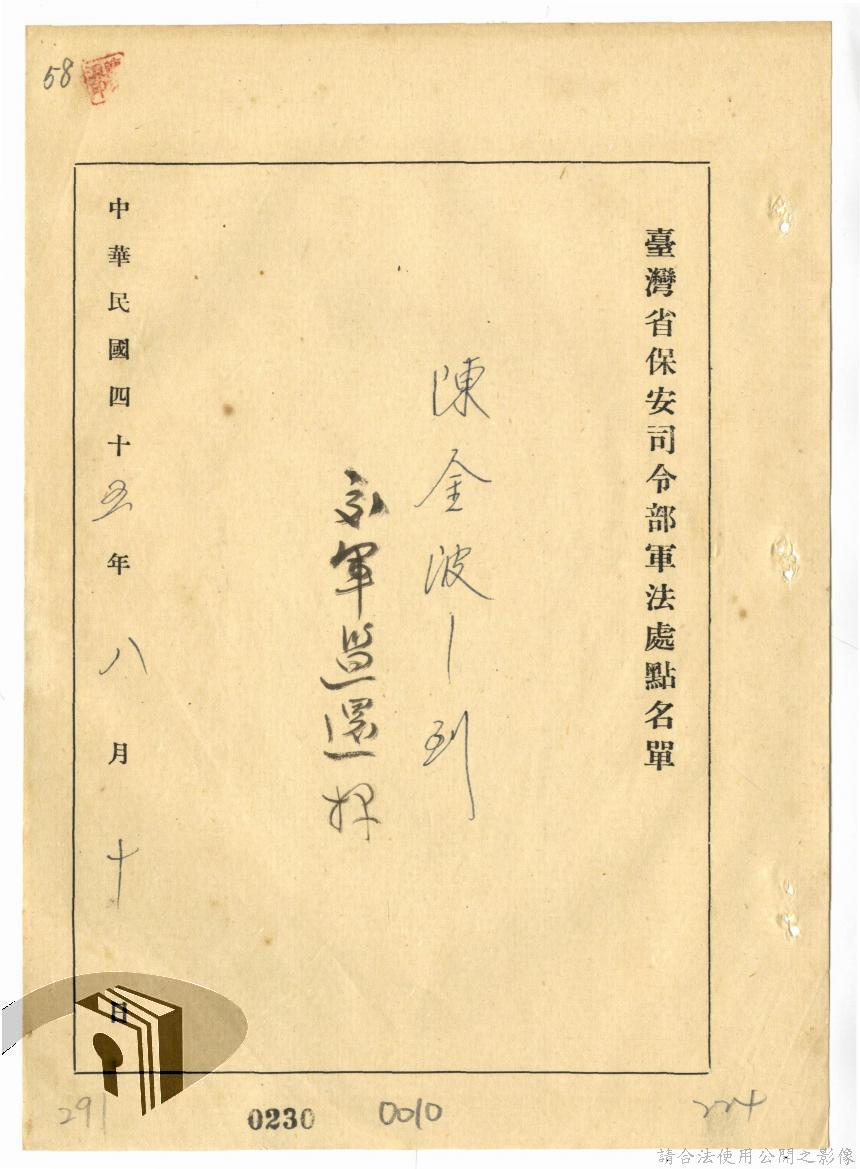 58
臺灣省保安司令部軍法處點名單
陳金波 到
軍監還押
中華民國四十五年八月十日
291
0230
0010
224
請合法使用公開之影像